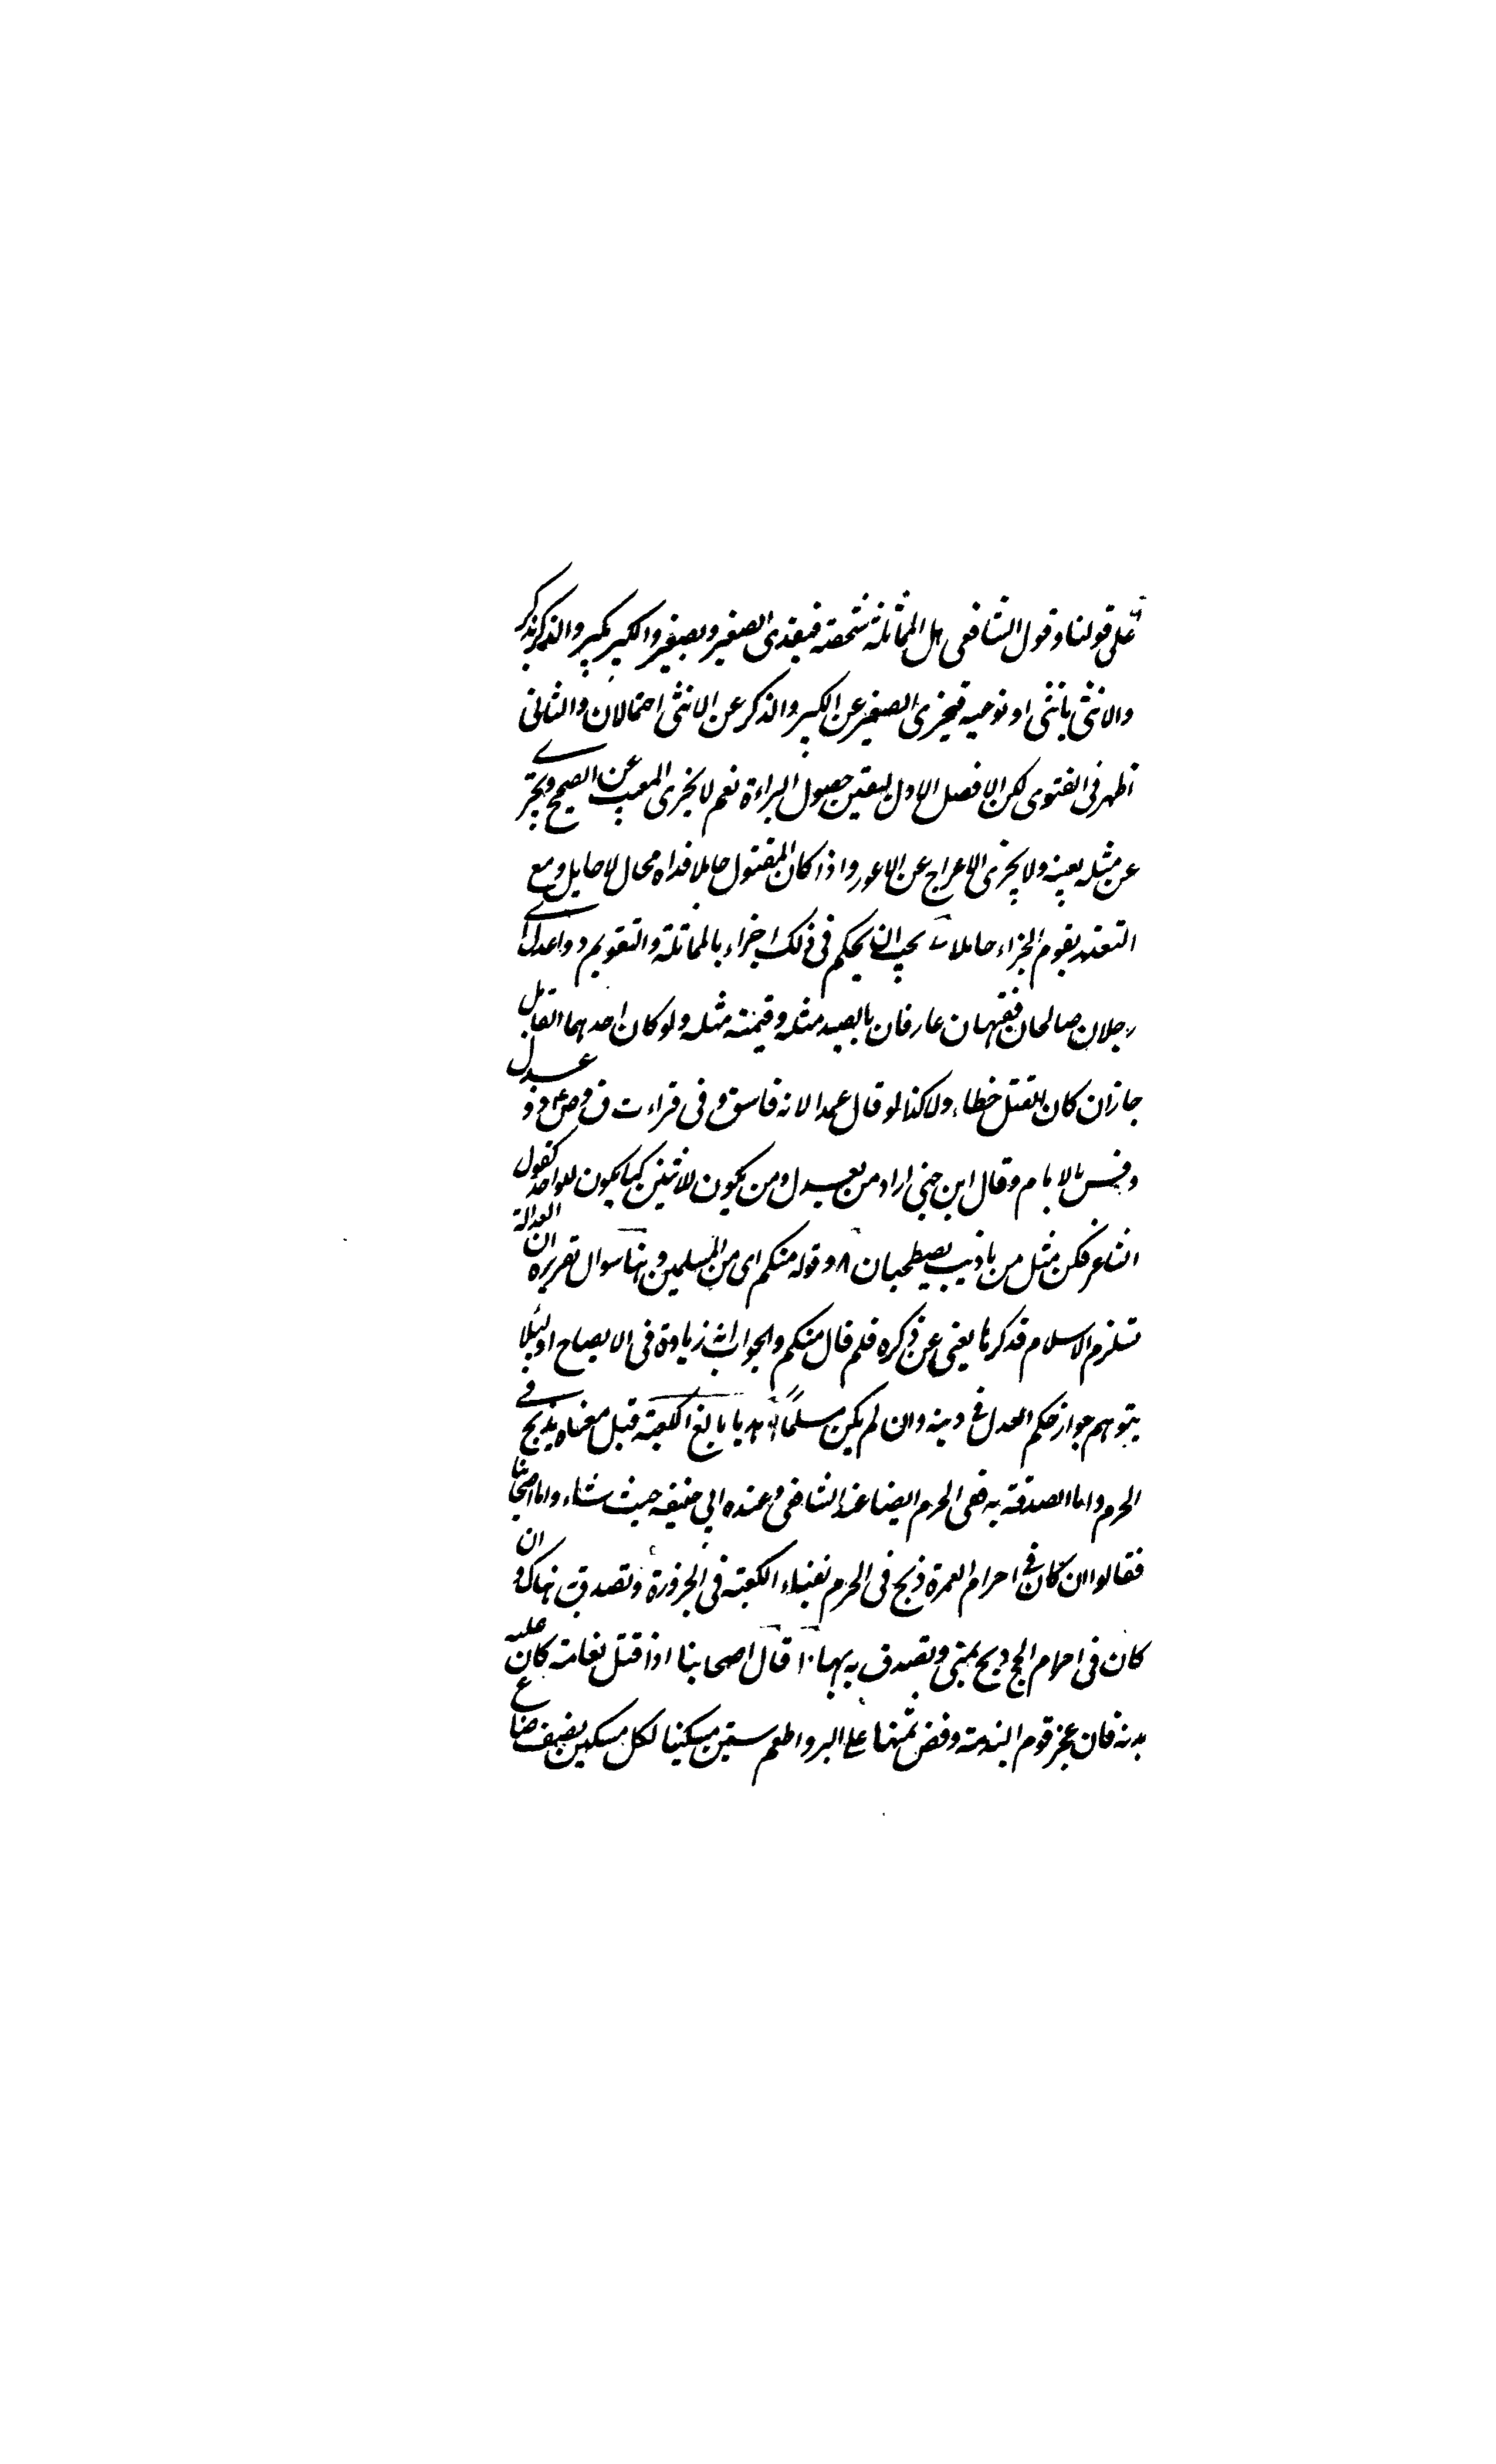 على قولنا وقول الشافعى هل المماثلة شخصية فيفدى الصغير بصغير والكبير بكبير والذكر بذكر
والانثى بانثى او نوعيه فيجزى الصغير عن الكبير والذكر عن الانثى احتمالان والثانى
اظهر فى الفتوى لكن الافضل الاول ليتقين حصول البراءة نعم لا يجزى المعيب عن الصحيح ويجزى
عن مثله بعينه ولا يجزى الاعرج عن الاعور واذا كان المقتول حاملا فداه بحامل ومع
التعذر يقوم الجزاء حاملا يجب ان يحكم فى ذلك الجزاء بالمماثلة والتقويم ذوا عدل اى
رجلان صالحان فقيهان عارفان بالصيد مثله وقيمته مثله ولو كان احدهما القاتل
جاز ان كان القتل خطاء ولا كذا لو قال عمدا لانه فاسق وفى قراءت ذو عدل
وفسر بالامام وقال ابن جنى اراد من يعدل ومن يكون للاثنين كما يكون للواحد كقول
الشاعر فكن مثل من ياذيب يصطحبان ٨ وقوله منكم اى من المسلمين وهنا سوال تقريره ان العدالة
تستلزم الاسلام فذكرها يغنى عن ذكره فلم قال منكم والجواب انه زيادة فى الايضاح او لئلا
يتوهم جواز حكم العدل فى دينه وان لم يكن مسلمًا ٩ هديا بالغ الكعبة قيل معناه يذبح فى
الحرم واما الصدقة به ففى الحرم ايضا عند الشافعى وعنده ابي حنيفه حيث شاء واما اصحابنا
فقالوا ان كان فى احرام العمرة ذبح فى الحرم بفناء الكعبة فى الجزورة وتصدق هناك وان
كان فى احرام الحج ذبح بمنى وتصدق به بها ١٠ قال اصحابنا اذا قتل نعامة كان عليه
بدنه فان عجز قوم البدنة وفض ثمنها على البر واطعم ستين مسكينا لكل مسكين نصف صاع